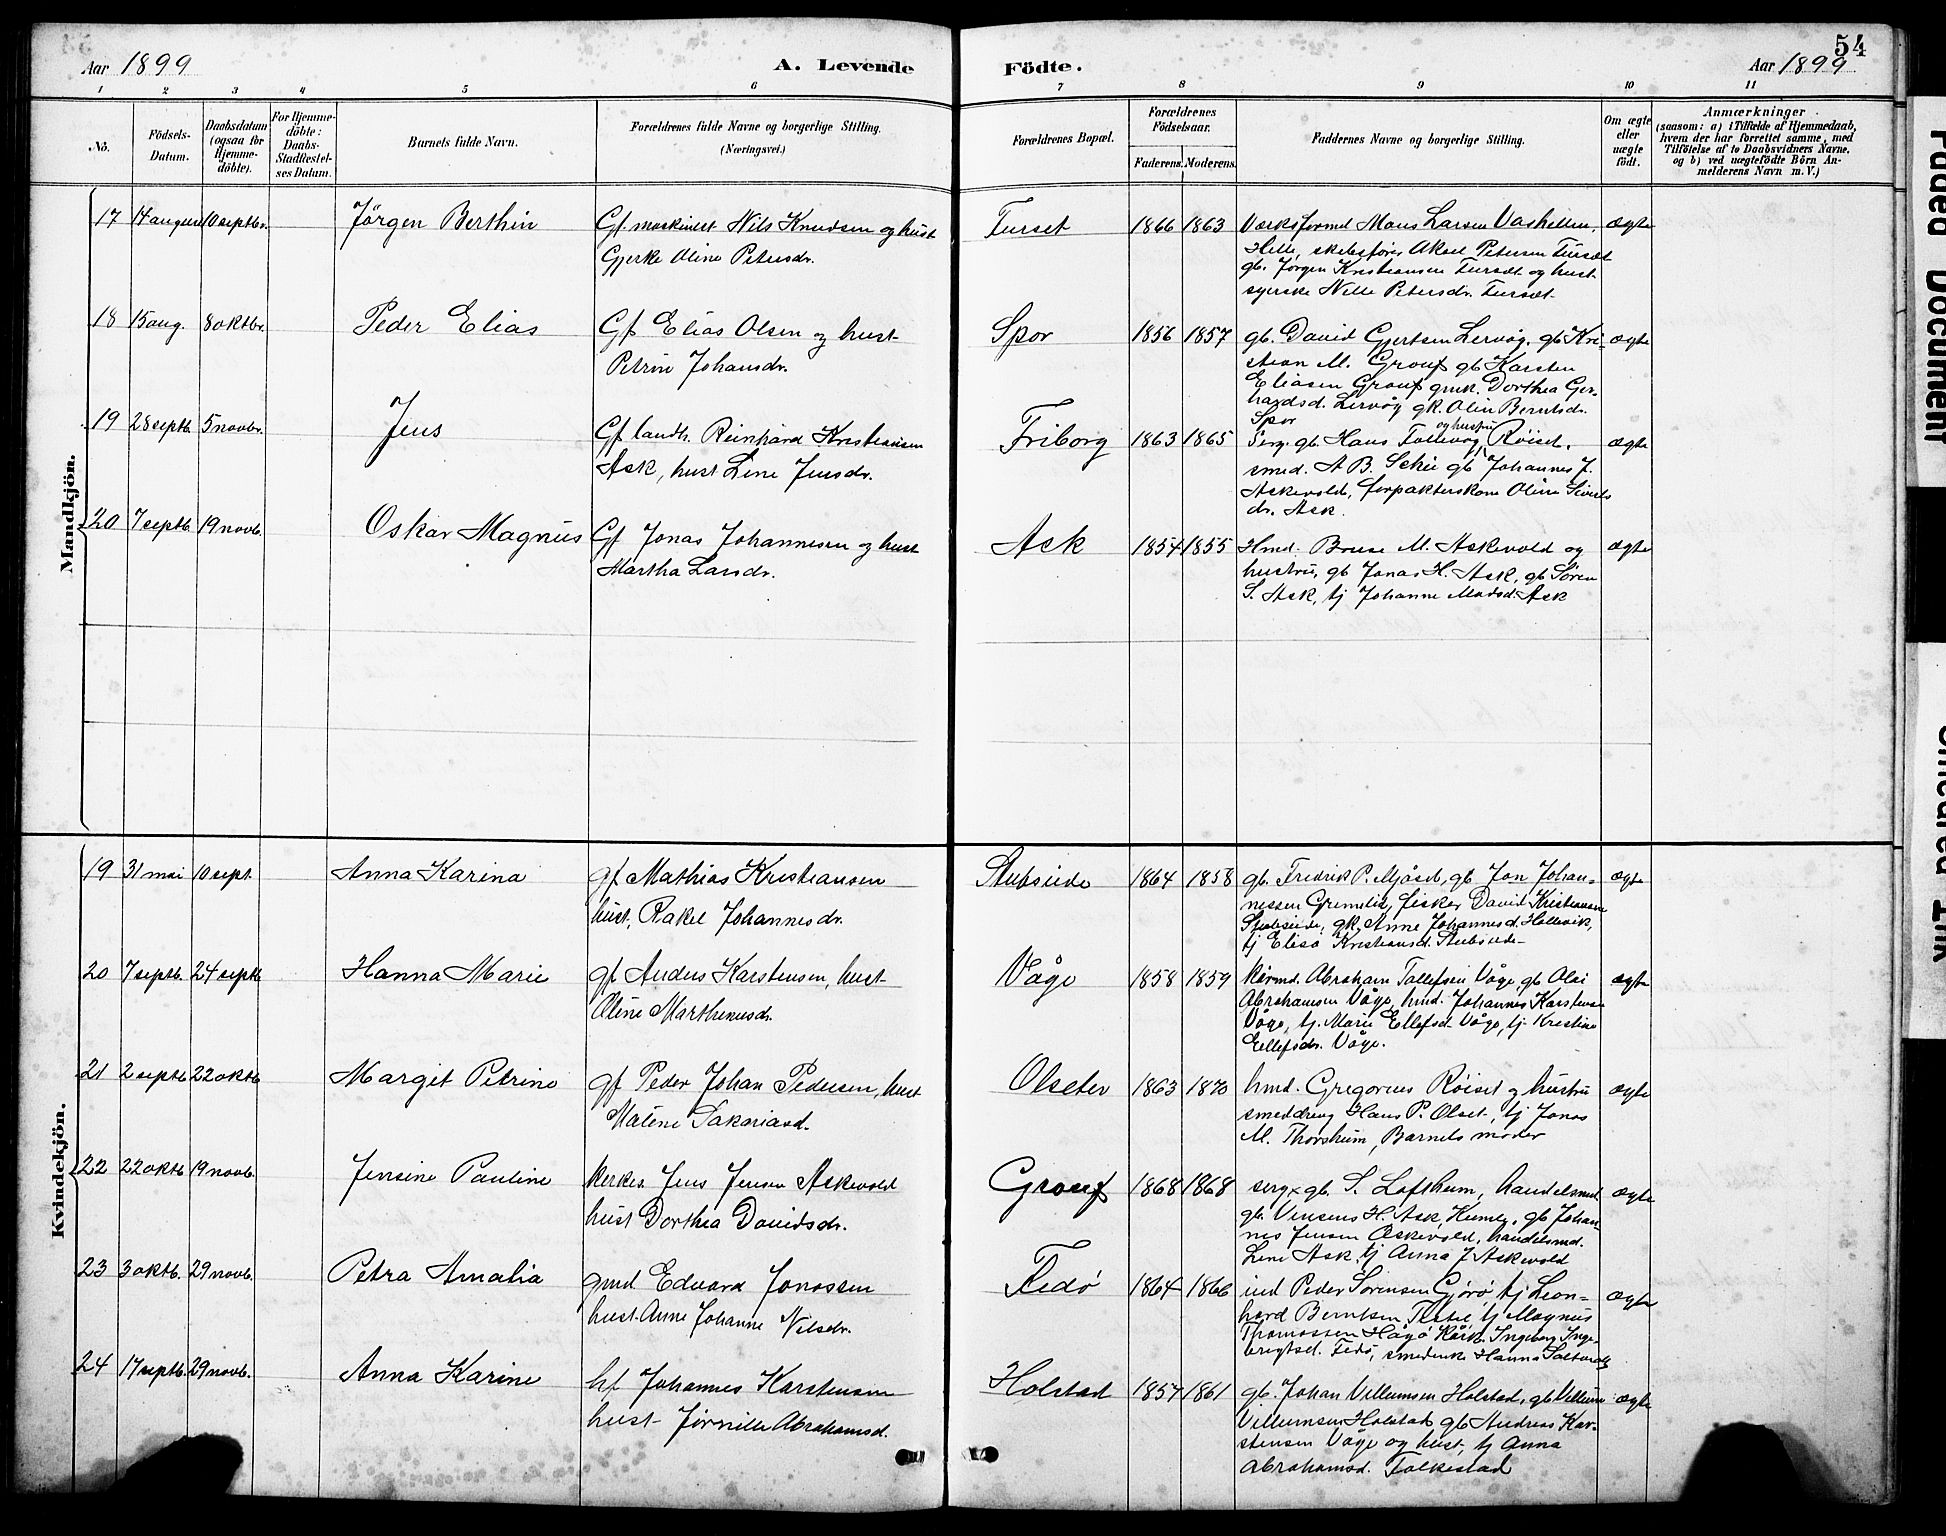 54
Aar 1899
A. Levende
Födte.
Aar 1899
1 2 3 4 5 6 7 8 9 10 11
No.
Födsels-
Datum.
Daabsdatum
(ogsaa for
Hjemme-
döbte).
For Hjemme-
döbte:
Daabs-
Stadfæstel-
ses Datum.
Barnets fulde Navn.
Forældrenes fulde Navne og borgerlige Stilling.
(Næringsvei.)
Forældrenes Bopæl.
Forældrenes
Födselsaar.
Faderens. Moderens.
Faddernes Navne og borgerlige Stilling.
Om ægte
eller
uægte
födt.
Anmærkninger
(saasom: a) i Tilfælde af Hjemmedaab,
hvem der har forrettet samme, med
Tilföielse af to Daabsvidners Navne,
og b) ved uægtefödte Börn An-
melderens Navn m. V.)
Mandkjön.
17 14 august 10 septbr. Jørgen Berthin
Gf. maskinist Nils Knudsen og hust
Gjerke Oline Petersdr.
Furset 1866 1863
Værksformd Mons Larsen Vashellen,
Helle, skibsfører Aksel Petersen Fursæt
gb. Jørgen Kristiansen Fursæt og hust
syerske Nille Petersdr. Fursæt
ægte
18 15 aug. 8 oktbr. Peder Elias
Gf Elias Olsen og hust
Petrine Johansdr.
Spor 1856 1857
gb. David Gjertsen Lervåg, gb Kri-
stian M. Grouf gb Karsten
Eliasen Grouf gmk. Dorthea Ger-
hardsd. Lervåg gk. Olin Berntsdr.
Spor
ægte
19 28 septb 5 novbr. Jens
Gf landh. Reinhard Kristiansen
Ask, hust Line Jensdr.
Friborg 1863 1865
Serg. gb. Hans Tollevåg og hustru, Røiset,
smed. A B. Schie gb Johannes J.
Askevold, forpakterskone Oline Siverts
dr. Ask.
ægte
20 7 septb. 19 novb. Oskar Magnus
Gf Jonas Johannesen og hust
Martha Larsdr.
Ask 1854 1855
Hmd. Bruse M. Askevold og
hustru, gb Jonas H. Ask, gb Søren
S. Ask, tj Johanne Madsd. Ask
ægte
Kvindekjön.
19 31 mai 10 sept. Anna Karina
gf Mathias Kristiansen
hust, Rakel Johannesdr.
Stubseide 1864 1858
gb. Fredrik P. Mjåset, gb Jon Johan-
nessen Grimelid, fisker David Kristiansen
Stubseide, gk. Anne Johannesd. Hollevik,
tj Elisa Kristiansd. Stubseide
ægte
20 7 septb. 24 septb Hanna Marie
gf Anders Karstensen, hust
Oline Marthinusdr.
Våge 1858 1859
kårmd. Abraham Tollefsen Våge gb Olai
Abrahamsen Våge, hmd. Johannes Karstensen
Våge, tj. Marie Ellefsd. Våge, tj. Kristine
Ellefsdr. Våge.
ægte
21 2 septb 22 oktb Margit Petrine
gf Peder Johan Pedersen, hust
Malene Sakariasd.
Olseter 1863 1870
hmd. Gregorius Røiset og hustru
smeddreng Hans P. Olset, tj Jonas
M. Thorsheim, Barnets moder
ægte
22 22 oktb 19 novb. Jensine Pauline
kirkes. Jens Jensen Askevold
hust Dorthea Davidsdr.
Grouf 1868 1868
serg. gb. S. Loftheim, handelsmd
gb. Vinsens H. Ask, Humle, gb Johan
nes Jensen Askevold, handelsmd.
Line Ask, tj Anna J Askevold
ægte
23 3 oktb. 29 novb. Petra Amalia
gmd Edvard Jonassen
hust. Anne Johanne Nilsdr.
Fedø 1864 1866
ind Peder Sørensen Gjørø tj Leon-
hard Berntsen Flatie, tj Magnus
Thomassen Hågø Kårk. Ingeborg Inge-
brigtsd. Fedø, smedenk Hanna
ægte
24 17 septb. 29 novb. Anna Karine
hf Johannes Karstensen
hust Jørnille Abrahamsd.
Holstad 1857 1861
gb. Johan Villumsen Holstad, gb Villum
Villumsen Holstad gb Andreas Kar-
stensen Våge og hust, tj Anna
Abrahamsd. Folkestad
ægte
Faded Document
Smeared Ink